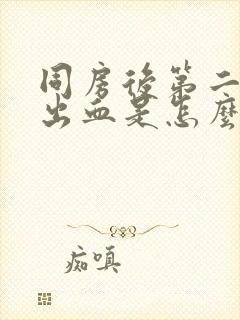 同房後第二
出血是怎麼
痴嗔